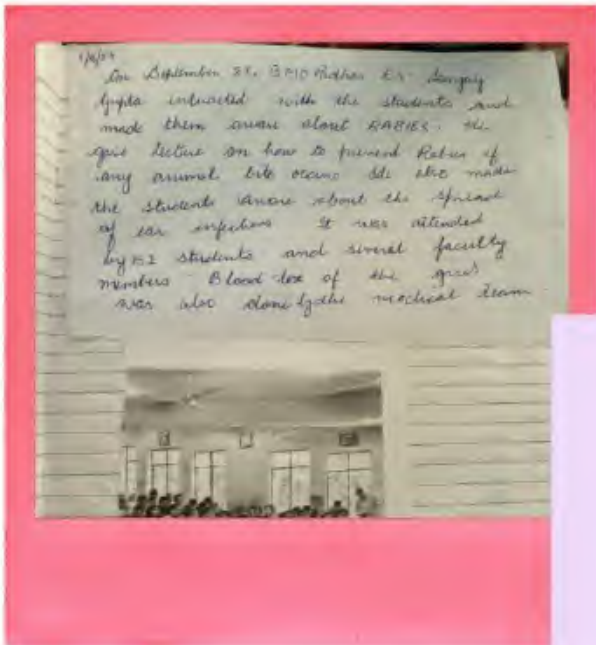 On September BMO Dr. Sanjay
Gupta interacted with the students and
made them aware about RABIES. He
gave lecture on how to prevent Rabies if
any animal bite occurs He also made
the students aware about the spread
of infections It was attended
by 82 students and several faculty
members Blood test of the girls
was also done by the medical team